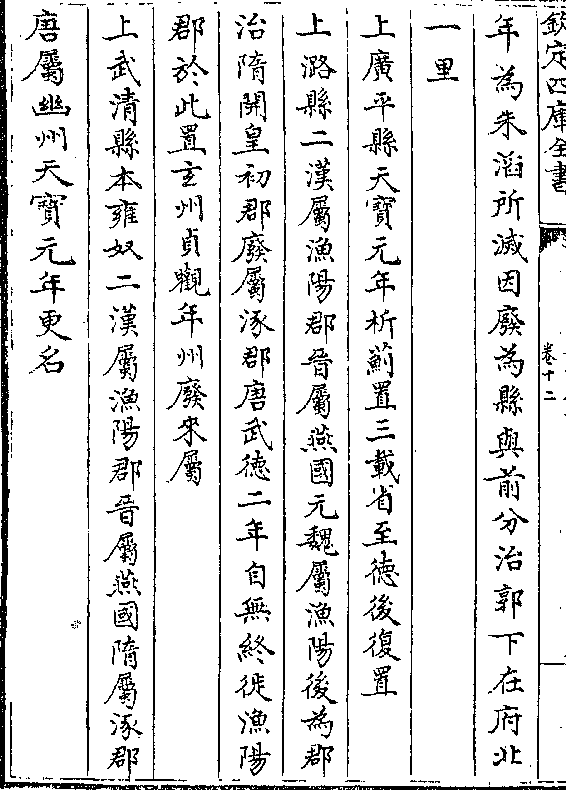 欽定四庫全書
卷十二
年為朱滔所滅因廢為縣與前分治郭下在府北
一里
上廣平縣天寶元年析薊置三載省至德後復置
上潞縣二漢屬漁陽郡晉屬燕國元魏屬漁陽後為郡
治隋開皇初郡廢屬涿郡唐武德二年自無終徙漁陽
郡於此置玄州貞觀年州廢來屬
上武清縣本雍奴二漢屬漁陽郡晉屬燕國隋屬涿郡
唐屬幽州天寶元年更名